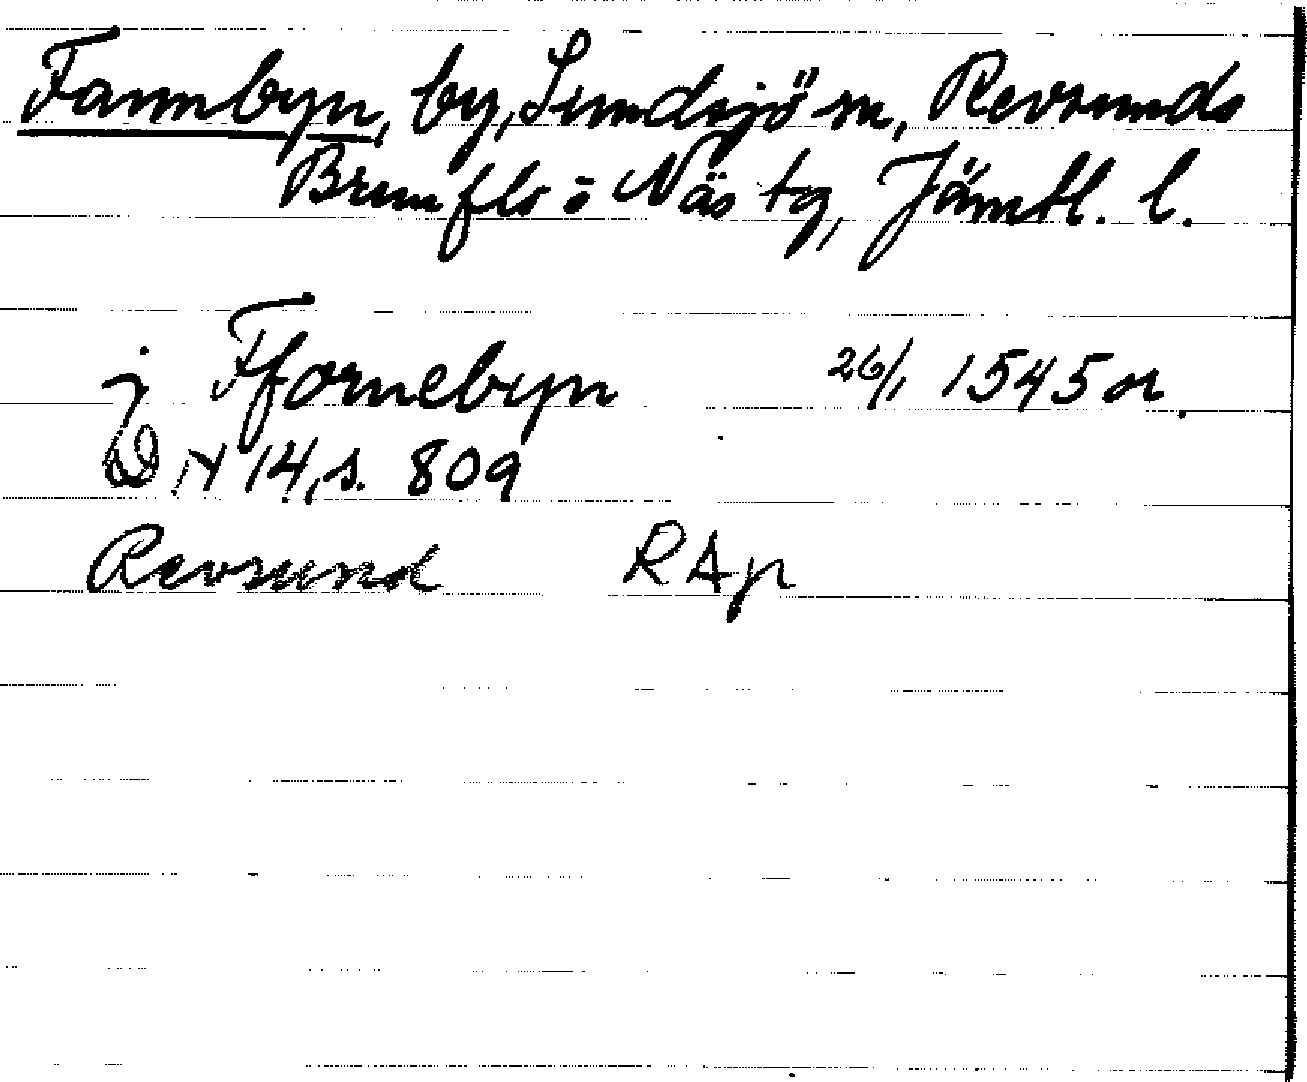 Fannbyn, by, Sundsjö sn, Revsunds
Brunflo o Näs tg, Jämtl. l.
j Ffornebyn 26/1 1545 or.
DN 14, s. 809
Revsund RAp